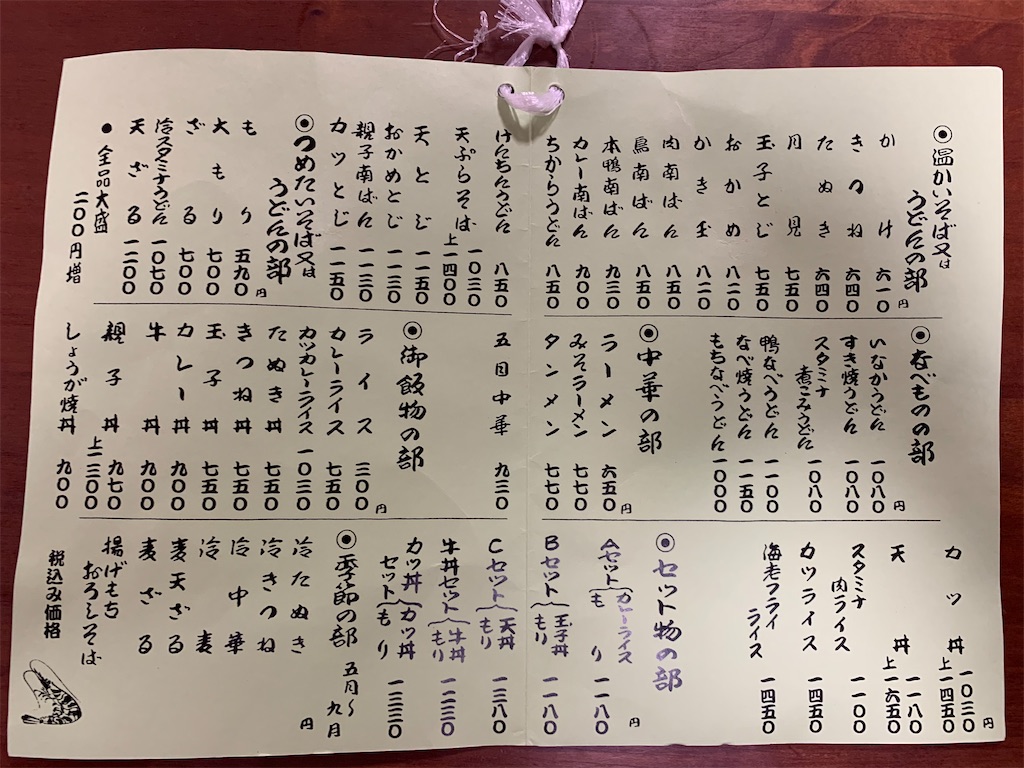 ◉温かいそば又は
うどんの部
かけ 六一〇円
きつね 六四〇
たぬき 六四〇
月見 七五〇
玉子とじ 七五〇
おかめ 八二〇
かき玉 八二〇
肉南ばん 八五〇
鳥南ばん 八五〇
本鴨南ばん 九三〇
カレー南ばん 九〇〇
ちからうどん 八五〇
けんちんうどん 八五〇
天ぷらそば 一〇三〇
上一四〇〇
天とじ 一一五〇
おかめとじ 一一三〇
親子南ばん 一一三〇
カツとじ 一一五〇
◉つめたいそば又は
うどんの部
もり 五九〇円
大もり 七〇〇
ざる 七〇〇
冷スタミナうどん 一〇七〇
天ざる 一二〇〇
●全品大盛
二〇〇円増
◉なべものの部
いなかうどん 一〇八〇円
すき焼うどん 一〇八〇
スタミナ
煮こみうどん 一〇八〇
鴨なべうどん 一一〇〇
なべ焼うどん 一一五〇
もちなべうどん 一〇〇〇
◉中華の部
ラーメン 六五〇円
みそラーメン 七七〇
タンメン 七七〇
五目中華 九三〇
◉御飯物の部
ライス 三〇〇円
カレーライス 七五〇
カツカレーライス 一〇三〇
たぬき丼 七五〇
きつね丼 七五〇
玉子丼 七五〇
カレー丼 九〇〇
牛丼 九〇〇
親子丼 九七〇
上一三〇〇
しょうが焼丼 九〇〇
カツ丼 一〇三〇円
上一四五〇
天丼 一一八〇
上一六五〇
スタミナ
肉ライス 一一〇〇
カツライス 一四五〇
海老フライ
ライス 一四五〇
◉セット物の部
Aセット{カレーライス
もり 一一八〇円
Bセット{玉子丼
もり 一一八〇
Cセット{天丼
もり 一三八〇
牛丼セット{牛丼
もり 一二三〇
カツ丼
セット{カツ丼
もり 一三三〇
◉季節の部 五月〜九月
冷たぬき 円
冷きつね
冷中華
冷麦
麦天ざる
麦ざる
揚げもち
おろしそば
税込み価格